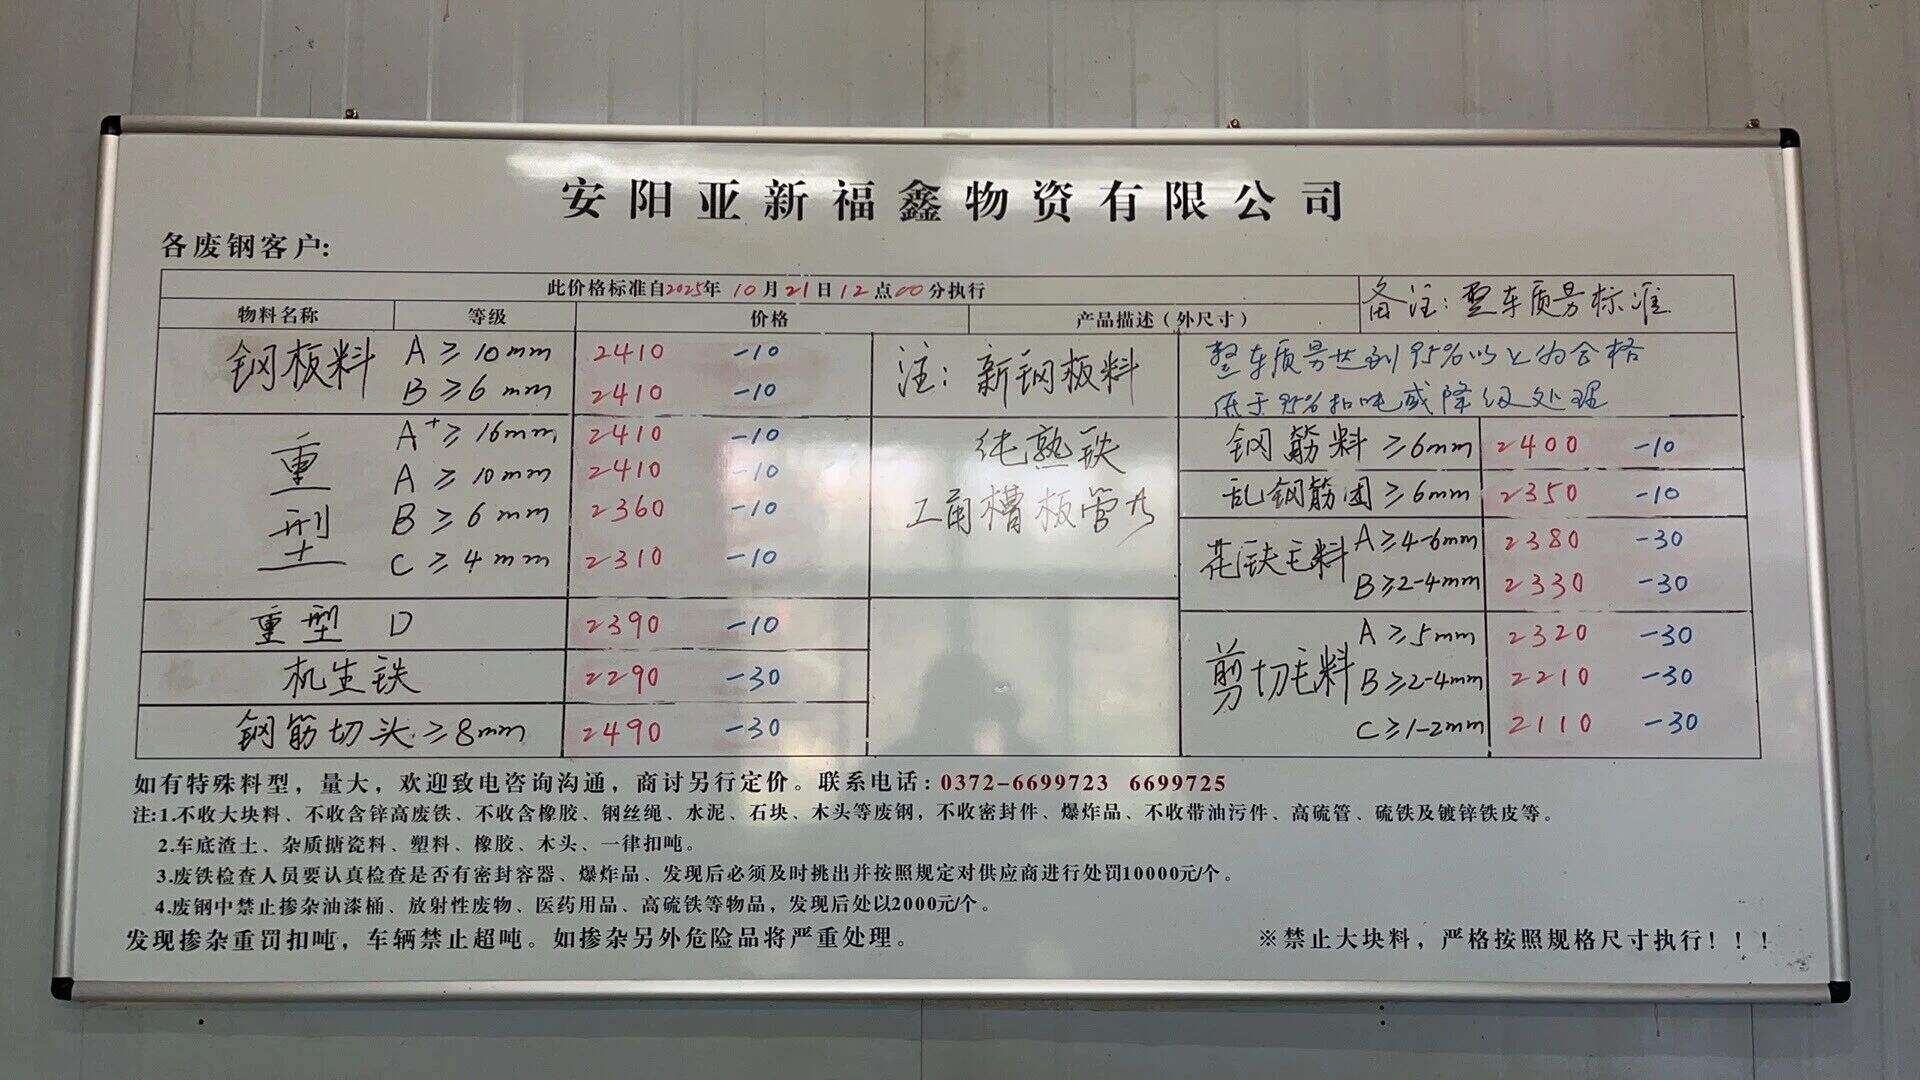 安阳亚新福鑫物资有限公司
各废钢客户:
此价格标准自2025年10月21日12点00分执行
备注:型车质另标准
物料名称 等级 价格 产品描述(外尺寸)
钢板料 A≥10mm 2410 -10
B≥6mm 2410 -10
注:新钢板料
整车质量达到95%以上为合格
低于95%扣吨或降级处理
重型 A+≥16mm 2410 -10
A≥10mm 2410 -10
B≥6mm 2360 -10
C≥4mm 2310 -10
纯熟铁
工角槽板管
重型 D 2390 -10
机生铁 2290 -30
钢筋切头≥8mm 2490 -30
钢筋料≥6mm 2400 -10
乱钢筋团≥6mm 2350 -10
花铁毛料 A≥4-6mm 2380 -30
B≥2-4mm 2330 -30
剪切毛料 A≥5mm 2320 -30
B≥2-4mm 2210 -30
C≥1-2mm 2110 -30
如有特殊料型，量大，欢迎致电咨询沟通，商讨另行定价。联系电话:0372-6699723 6699725
注:1.不收大块料、不收含锌高废铁、不收含橡胶、钢丝绳、水泥、石块、木头等废钢，不收密封件、爆炸品、不收带油污件、高硫管、硫铁及镀锌铁皮等。
2.车底渣土、杂质搪瓷料、塑料、橡胶、木头、一律扣吨。
3.废铁检查人员要认真检查是否有密封容器、爆炸品、发现后必须及时挑出并按照规定对供应商进行处罚10000元/个。
4.废钢中禁止掺杂油漆桶、放射性废物、医药用品、高硫铁等物品，发现后处以2000元/个。
发现掺杂重罚扣吨，车辆禁止超吨。如掺杂另外危险品将严重处理。
※禁止大块料，严格按照规格尺寸执行！！！